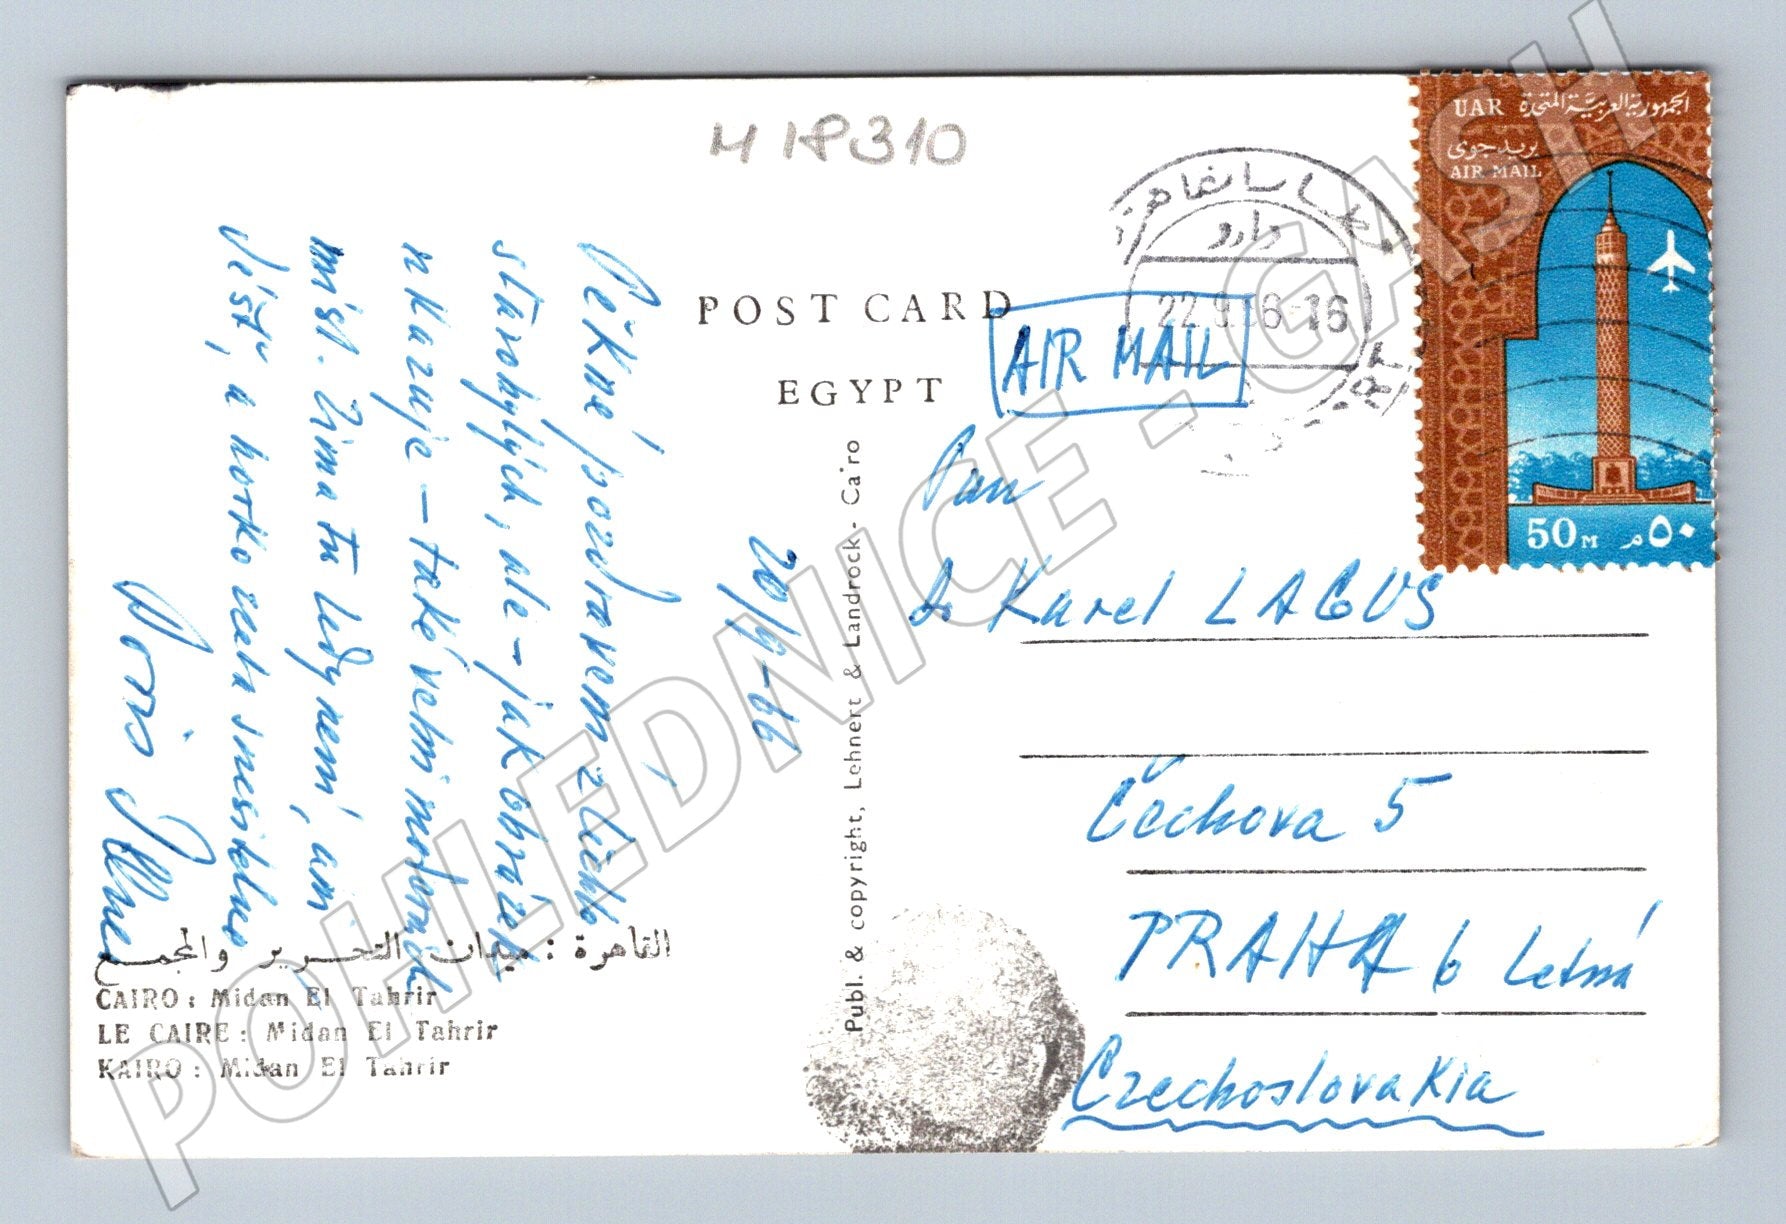 M 18310
POST CARD
EGYPT
AIR MAIL
UAR الجمهورية العربية المتحدة
بريد جوى
AIR MAIL
50 M ٥٠ م
20/9-66
Pěkné pozdravem z tichto
starobylých, ale - jak obrázek
ukazuje - také velmi moderních
míst. Zima tu tedy není, ani
déšť, a horko zcela snesitelné
Pan
Dr Karel LAGUS
Čechova 5
PRAHA 6 Letná
Czechoslovakia
Publ. & copyright, Lehnert & Landrock - Cairo
القاهرة : ميدان التحرير والمجمع
CAIRO : Midan El Tahrir
LE CAIRE : Midan El Tahrir
KAIRO : Midan El Tahrir
POHLEDNICE - GASH